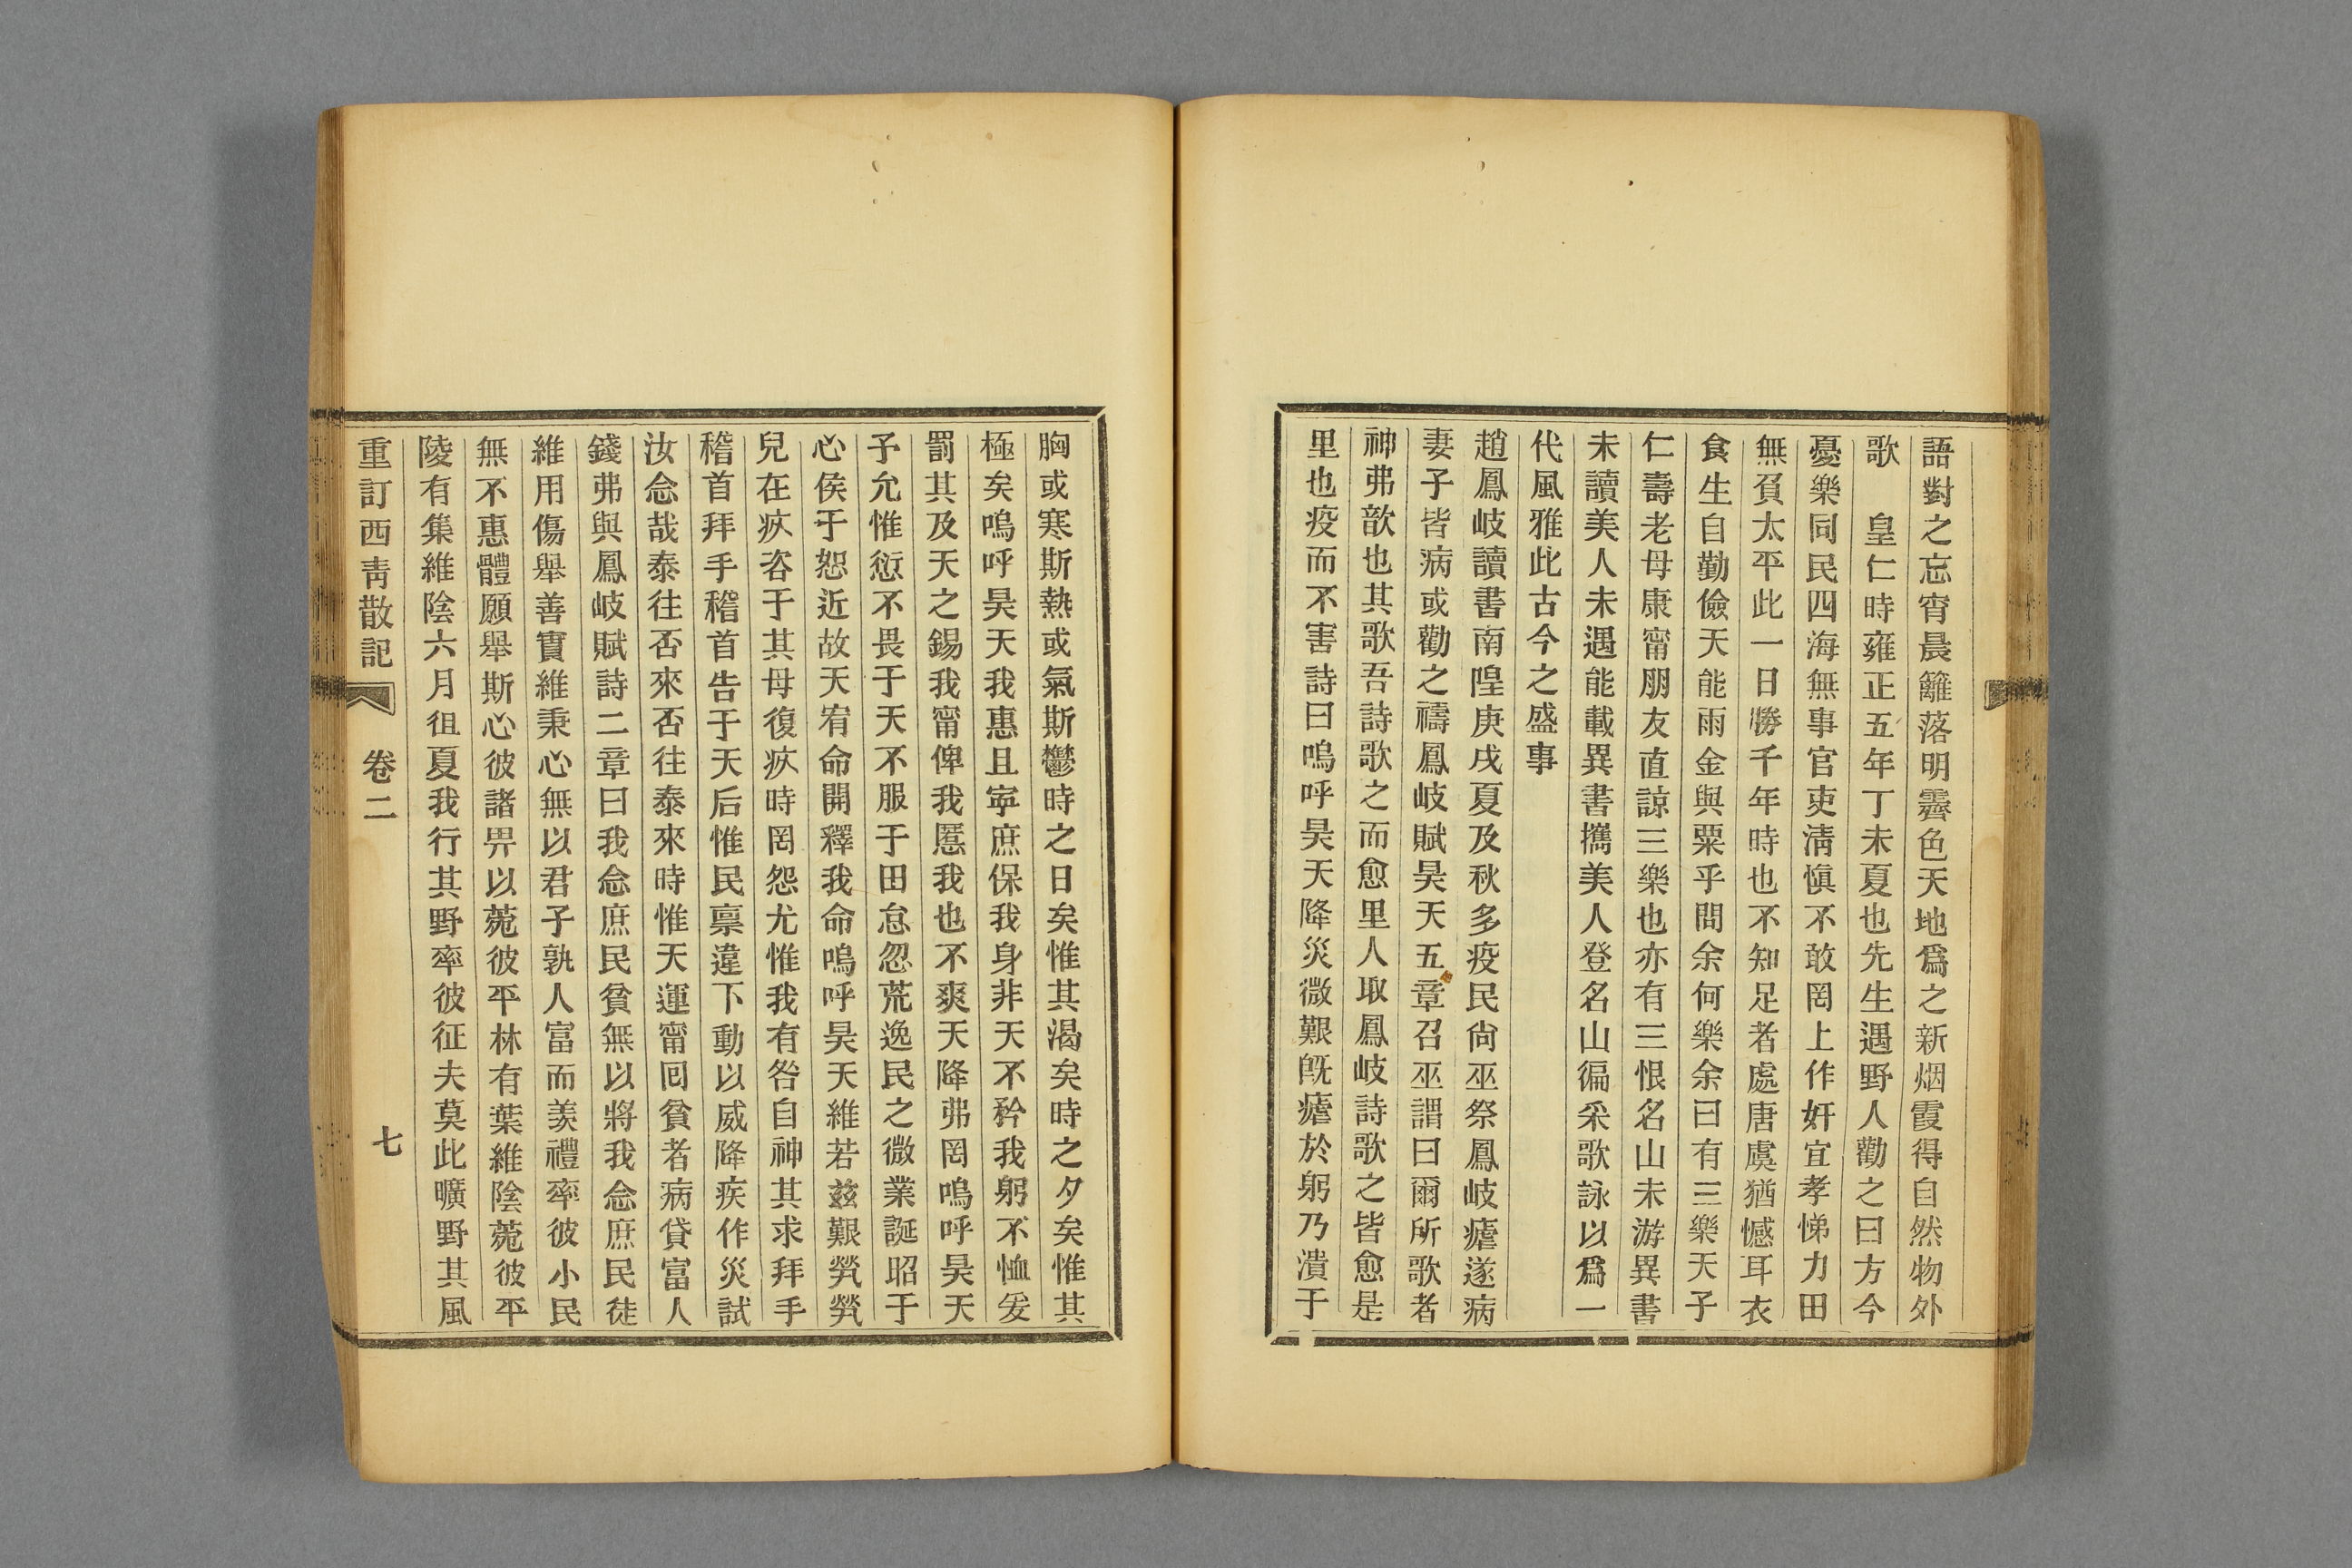 語對之忘宵晨籬落明霽色天地爲之新烟霞得自然物外
歌　皇仁時雍正五年丁未夏也先生遇野人勸之曰方今
憂樂同民四海無事官吏淸愼不敢罔上作奸宜孝悌力田
無負太平此一日勝千年時也不知足者處唐虞猶憾耳衣
食生自勤儉天能雨金與粟乎問余何樂余曰有三樂天子
仁壽老母康甯朋友直諒三樂也亦有三恨名山未游異書
未讀美人未遇能載異書攜美人登名山徧采歌詠以爲一
代風雅此古今之盛事
趙鳳岐讀書南隍庚戌夏及秋多疫民尙巫祭鳳岐瘧遂病
妻子皆病或勸之禱鳳岐賦昊天五章召巫謂曰爾所歌者
神弗歆也其歌吾詩歌之而愈里人取鳳岐詩歌之皆愈是
里也疫而不害詩曰嗚呼昊天降災微艱旣瘧於躬乃潰于
胸或寒斯熱或氣斯鬱時之日矣惟其渴矣時之夕矣惟其
極矣嗚呼昊天我惠且寧庶保我身非天不矜我躬不恤爰
罰其及天之錫我甯俾我慝我也不爽天降弗罔嗚呼昊天
予允惟愆不畏于天不服于田怠忽荒逸民之微業誕昭于
心侯于恕近故天宥命開釋我命嗚呼昊天維若茲艱煢煢
兒在疚咨于其母復疚時罔怨尤惟我有咎自神其求拜手
稽首拜手稽首告于天后惟民稟違下動以威降疾作災試
汝念哉泰往否來否往泰來時惟天運甯囘貧者病貸富人
錢弗與鳳岐賦詩二章曰我念庶民貧無以將我念庶民徒
維用傷舉善實維秉心無以君子孰人富而羨禮率彼小民
無不惠體願舉斯心彼諸畀以菀彼平林有葉維陰菀彼平
陵有集維陰六月徂夏我行其野率彼征夫莫此曠野其風
重訂西靑散記　卷二　七